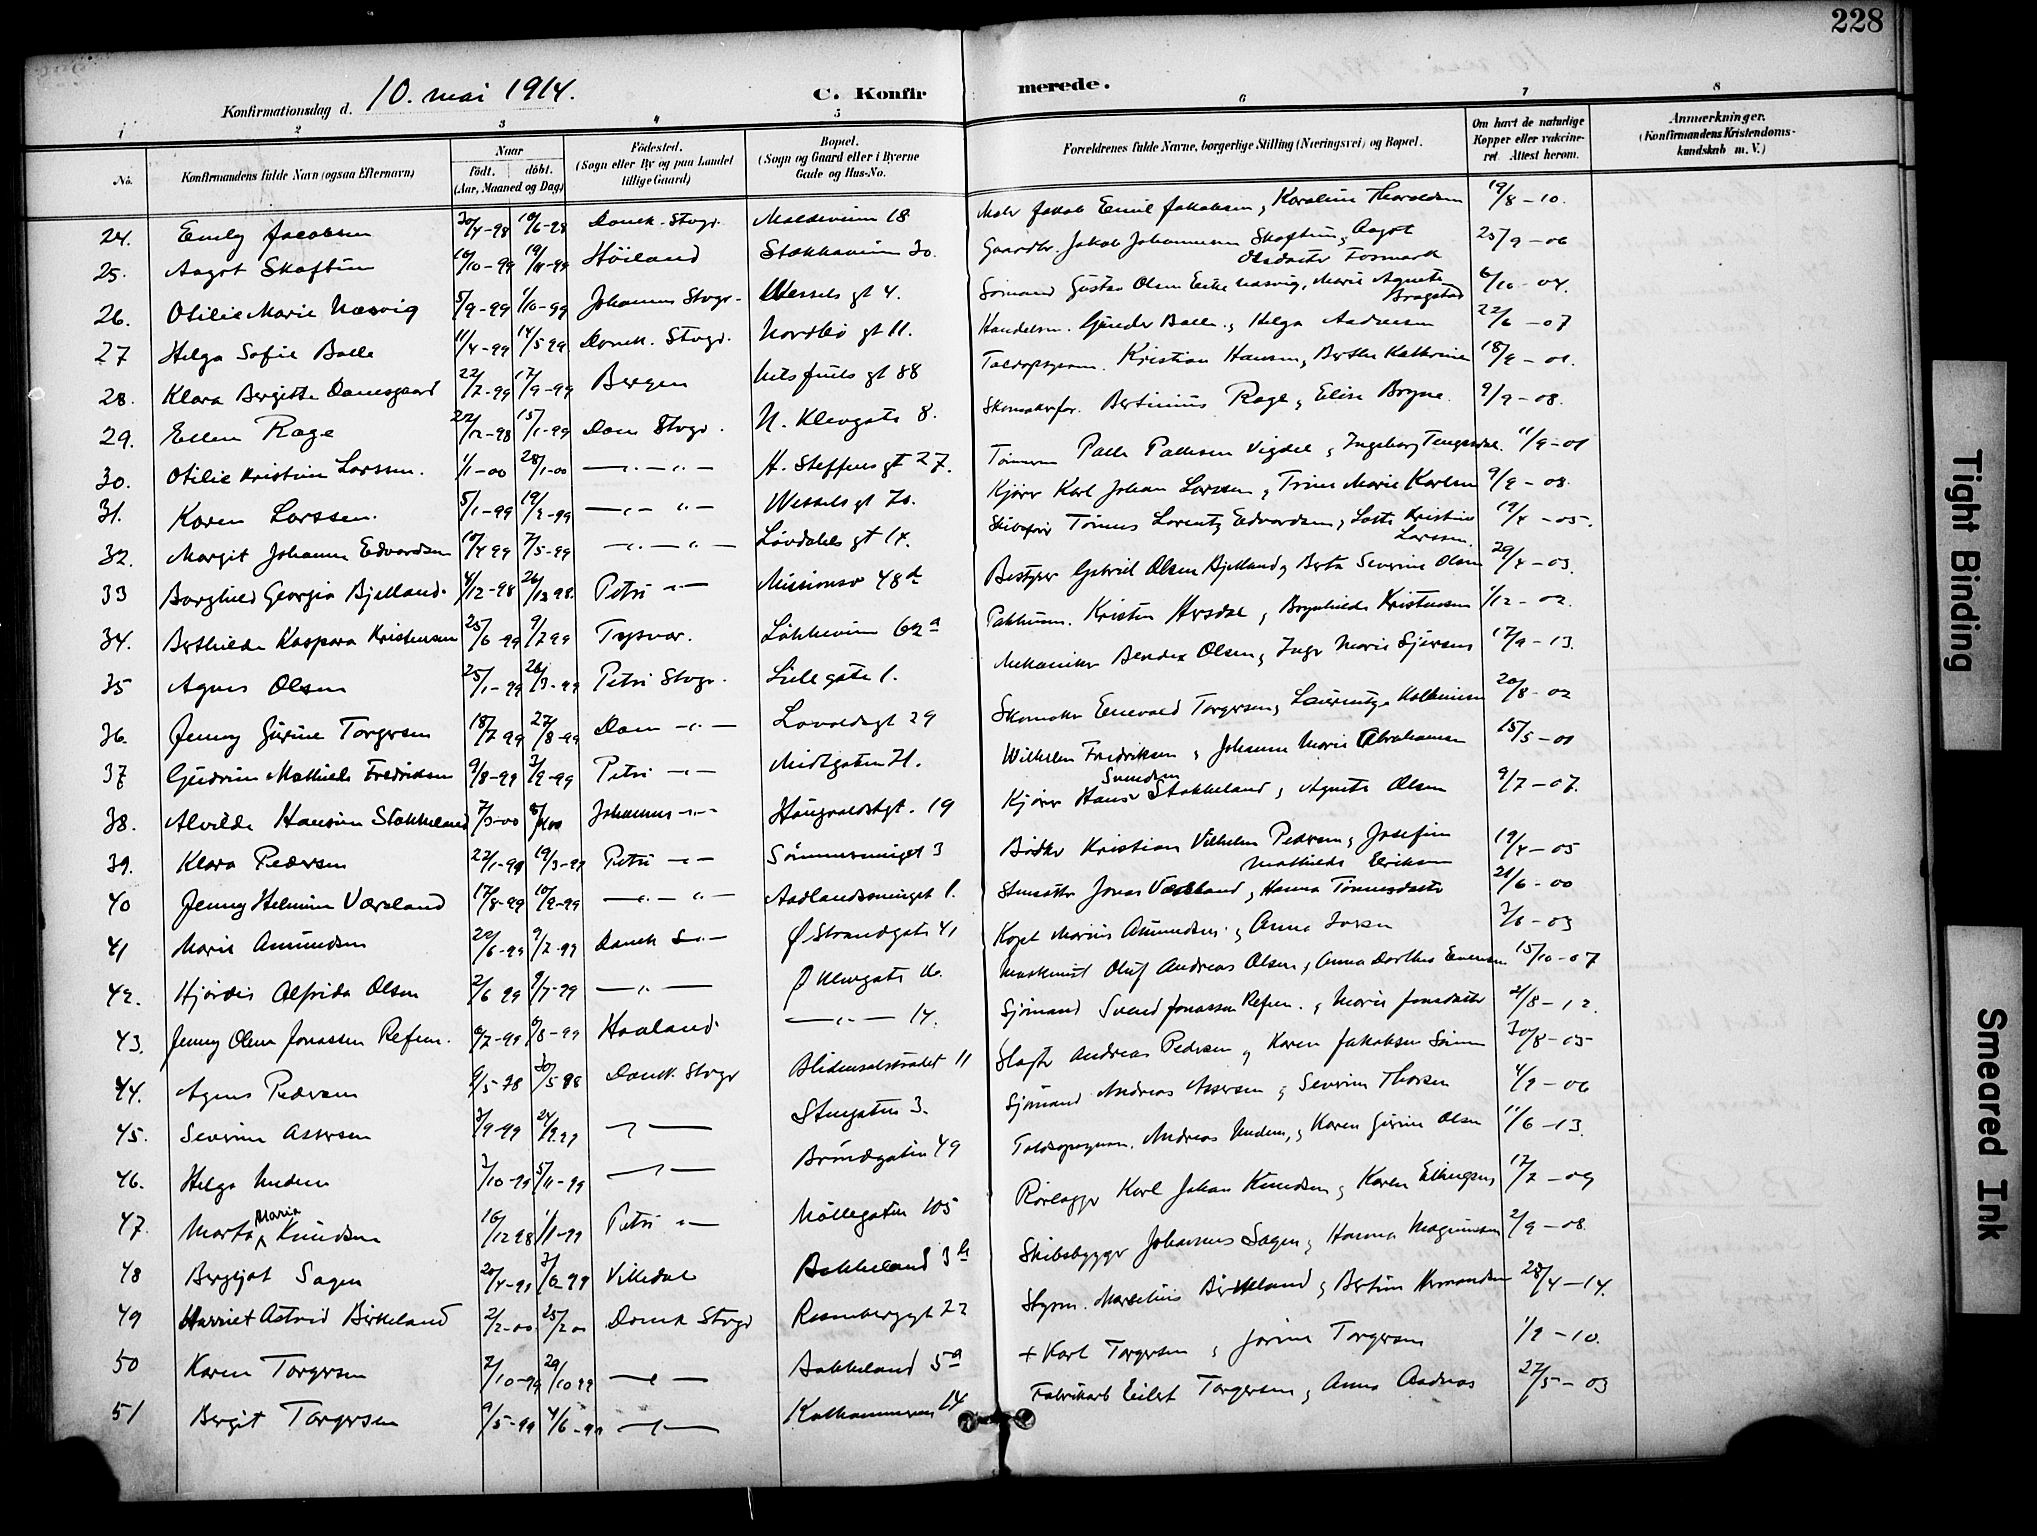 228
Konfirmationsdag d. 10. mai 1914.
C. Konfirmerede.
1 2 3 4 5 6 7 8
No. Konfirmandens fulde Navn (ogsaa Efternavn) Naar født. døbt. (Aar, Maaned og Dag) Fødested. (Sogn eller By og paa Landet tillige Gaard) Bopæl. (Sogn og Gaard eller i Byerne Gade og Hus-No. Forældrenes fulde Navne, borgerlige Stilling (Næringsvei) og Bopæl. Om havt de naturlige Kopper eller vakcineret. Attest herom. Anmærkninger. (Konfirmandens Kristendomskundskab m. V.)
24. Emily Jacobsen 30/4-98 19/6-98 Domk. Stvgr. 18 Maler Jakob Emil Jakobsen, Karoline Thoroldsen 19/8-10.
25. Aagot Skaftun 16/10-99 19/11-99 Høiland Stokkaveien 30. Gaardbr. Jakob Johannesen Skaftun, Aagot Fosmark 25/9-06
26. Otilie Marie Næsvig 5/9-99 1/10-99 Johannes Stvgr. Wessels gt 4. Sømand Gustav Olsen Næsvig, Marie Agnete 6/10-04.
27 Helga Sofie Balle 11/4-99 14/5 99 Domk. Stvgr. Nordbø gt 11. Handelsm. Gunder Balle, Helga Andersen 22/6-07
28. Klara Bergitte Damsgaard 22/7-99 17/9-99 Bergen Nils Juels gt 88 Kristian Hansen, Berthe Kathrine
29. Ellen Rage 22/12-98 15/1-99 Dom Stvgr. N. Klevgate 8. Bertinius Rage, Elise Bryne. 9/9-08.
30. Otilie Kristine Larssen. 1/1-00 28/1-00 —„—„— H. Steffens gt 27. Palle Pallesen Vigdel, Ingeborg 11/9-01
31. Karen Larssen. 5/1-99 19/2-99 —„—„— Wessels gt 70. Kjører Karl Johan Larssen, Trine Marie Karlsen 9/9-08.
32. Margit Johanne Edvardsen 10/4 99 7/5-99 —„—„— Løvdahls gt 14. Tønnes Lorentz Edvardsen, Lotte Kristine Larssen. 19/4-05.
33 Borghild Georgia Bjelland. 4/12-98 26/12 98 Petri „— Missionsv 48d Bestyrer Gabriel Olsen Bjelland, Berta Severine Olsen 29/4-03.
34. Berthilde Kaspara Kristensen 25/6 99 9/7 99 Tysvær. Løkkevein 62a Kristen Aresdal, Brynhilde Kristensen 1/12-02.
35 Agnes Olsen 25/1-99 26/3-99 Petri Stvgr. Lillegate 1. Mekaniker Bendix Olsen, Inger Marie Sjursen 17/9-13.
36. Jenny Gurine Torgersen 18/7 99 27/8-99 Dom —„— 29 Skomaker Enevald Torgersen, Laurentze 20/8-02
37 Gudrun Mathilde Fredriksen 9/8-99 3/9-99 Petri —„— Midtgaten 71. Wilhelm Fredriksen, Johanne Marie Abrahamsen 15/5-01
38. Alvilde Hansine Stokkeland 7/3-00 Johannes —„— 19 Kjører Hans Svendsen Stokkeland, Agnete Olsen 9/7-07.
39. Klara Pedersen 22/1-99 19/3-99 Petri —„— Sømmesmuget 3 Bødker Kristian Vilhelm Pedersen, Josefine Mathilde Eriksen 19/4-05
40 Jenny Helmine Værland 17/8-99 10/9-99 —„—„— Aadlandssmuget 1. Jonas Værland, Hanna Tønnesdatter 21/6-00
41 Marie Amundsen 22/6-99 9/7-99 Domk S.„— Ø Strandgate 41 Kapt Marius Amundsen, Anna 7/6-03
42. Hjørdis Alfrida Olsen 2/6 99 9/7-99 —„— Ø Klevgate 16. Maskinist Oluf Andreas Olsen, Anna Dorthea 15/10-07
43. Jenny Olene Jonassen Refen. 6/7-99 6/8-99 Haaland. —„— 14. Sjømand Svend Jonassen Refen., Marie Jonasdatter 21/8-12.
44. Agnes Pedersen 9/5-98 30/5 98 Domk. Stvgr Blidensolstrædet 11 Slagter Andreas Pedersen, Karen Jakobsen 30/8-05
45. Severine Assersen 3/9-99 24/9 99 —„— Stengaten 3. Sjømand Andreas Assersen, Severine Thorsen 4/9-06
46. Helga 3/10-99 5/11-99 —„— Brøndgaten 49 Andreas, Karen Gurine Olsen 11/6-13.
47. Marta Maria Knudsen 16/12 98 1/1-99 Petri „— Møllegaten 105 Rørlægger Karl Johan Knudsen, Karen 17/7-09
48 Bergljot Sagen 20/4-99 3/6 99 Vikedal Bakkeland 3b Skibsbygger Johannes Sagen, Hanna Magnussen 2/9-08.
49 Harriet Astrid Birkeland 2/2-00 25/2 00 Domk Stvgr Rosenberggt 22 Styrm. Marselius Birkeland, Bertine 28/4-14.
50 Karen Torgersen 7/10-99 29/10 99 —„— Bakkeland 5a + Karl Torgersen, Jorine Torgersen 1/9-10.
51 Bergit Torgersen 9/5-99 4/6-99 —„— 14 Fabrikarb Eilert Torgersen, Anna 27/5-03
Tight Binding
Smeared Ink